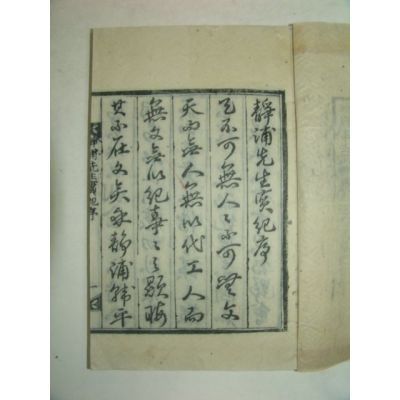 靜浦先生實紀序
天不可無人〻不可無文
天而無人無以代工人而
無文無以紀事〻之顯晦
其不在文矣乎靜浦韓平
靜浦先生實紀序
一